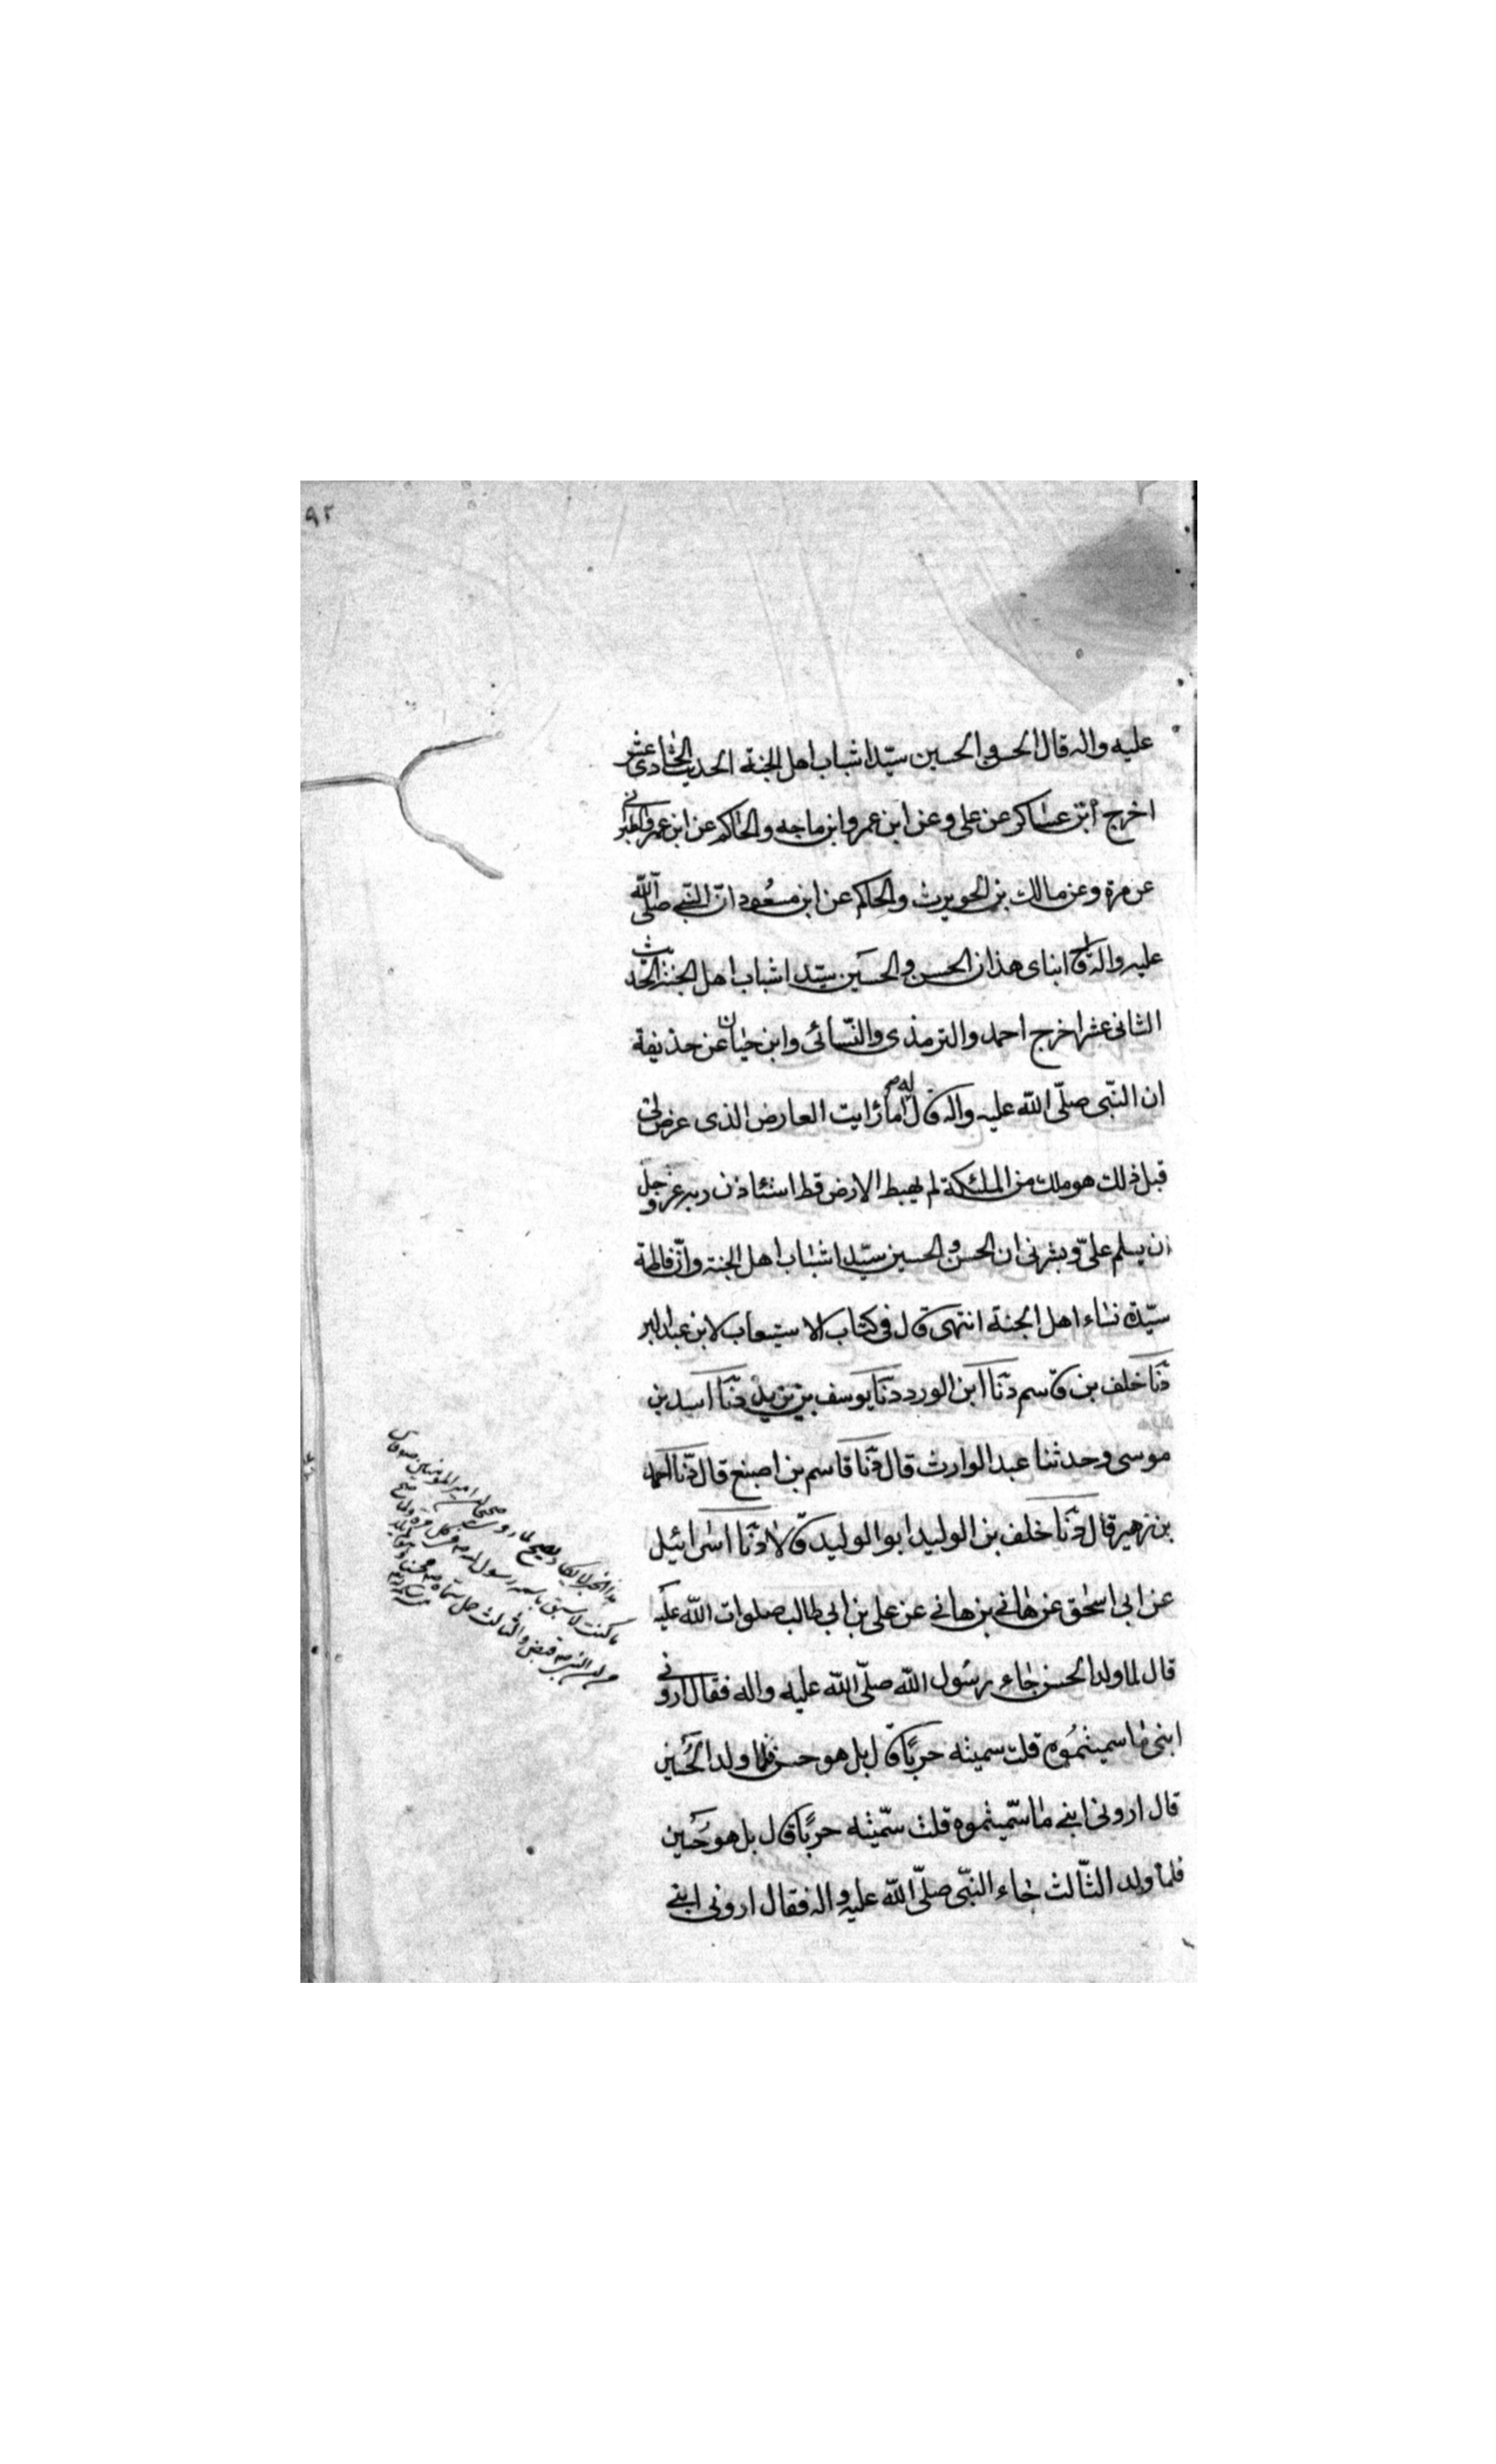 ٩٢
عليه واله قال الحسن والحسين سيّدا شباب اهل الجنة الحديث الحادى عشر
اخرج ابن عساكر عن على وعن ابن عمر وابن ماجه والحاكم عن ابن عمر والطبرانى
عن قرة وعن مالك بن الحويرث والحاكم عن ابن مسعود انّ النبى صلّى الله
عليه واله قال ابناى هذان الحسن والحسين سيّدا شباب اهل الجنة الحديث
الثانى عشر اخرج احمد والترمذى والنّسائى وابن حبان عن حذيفة
ان النّبى صلّى الله عليه واله قال له اما رايت العارض الذى عرض لى
قبل ذلك هو ملك من الملئكة لم يهبط الارض قط استئاذن ربه عز وجل
ان يسلم علىّ وبشرنى ان الحسن والحسين سيّدا شباب اهل الجنة وانّ فاطمة
سيّدة نساء اهل الجنة انتهى قال فى كتاب الاستيعاب لابن عبد البر
دثنا خلف بن قاسم دثنا ابن الورد دثنا يوسف بن يزيد دثنا اسد بن
موسى وحدثنا عبد الوارث قال دثنا قاسم بن اصبغ قال دثنا احمد
بن زهير قال دثنا خلف بن الوليد ابو الوليد قالا دثنا اسرائيل
عن ابى اسحق عن هانى بن هانى عن على بن ابى طالب صلوات الله عليه
قال لما ولد الحسن جاء رسول الله صلّى الله عليه واله فقال ارونى
ابنى ما سميتموه قلت سميته حربًا قال بل هو حسن فلما ولد الحسين
قال ارونى ابنى ما سمّيتموه قلت سمّيته حربًا قال بل هو حسين
فلما ولد الثّالث جاء النبّى صلّى الله عليه واله فقال ارونى ابنى